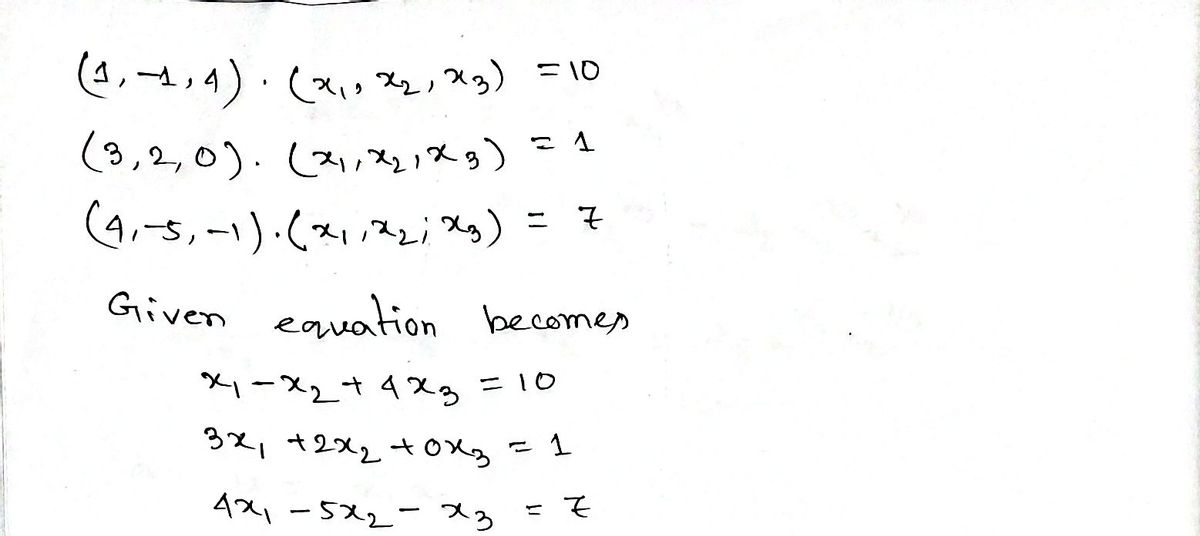 (1, -1, 4) · (x₁, x₂, x₃) = 10
(3, 2, 0) · (x₁, x₂, x₃) = 1
(4, -5, -1) · (x₁, x₂; x₃) = 7
Given equation becomes
x₁ - x₂ + 4x₃ = 10
3x₁ + 2x₂ + 0x₃ = 1
4x₁ - 5x₂ - x₃ = 7